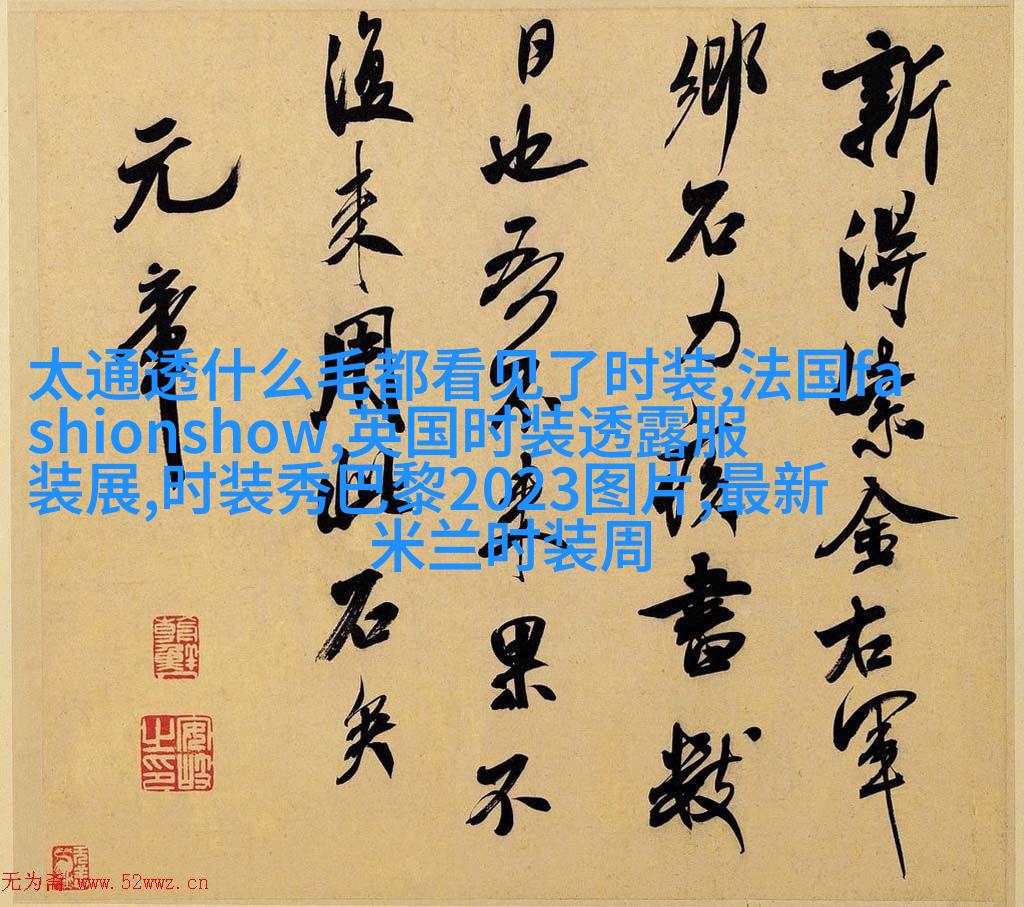 新得紫金右軍
鄉石力疾書數
日也吾不来果不
復来用此石矣
元章
太通透什么毛都看见了时装,法国fa
shionshow,英国时装透露服
装展,时装秀巴黎2023图片,最新
米兰时装周
安岐之印
无为斋 www.52wwz.cn